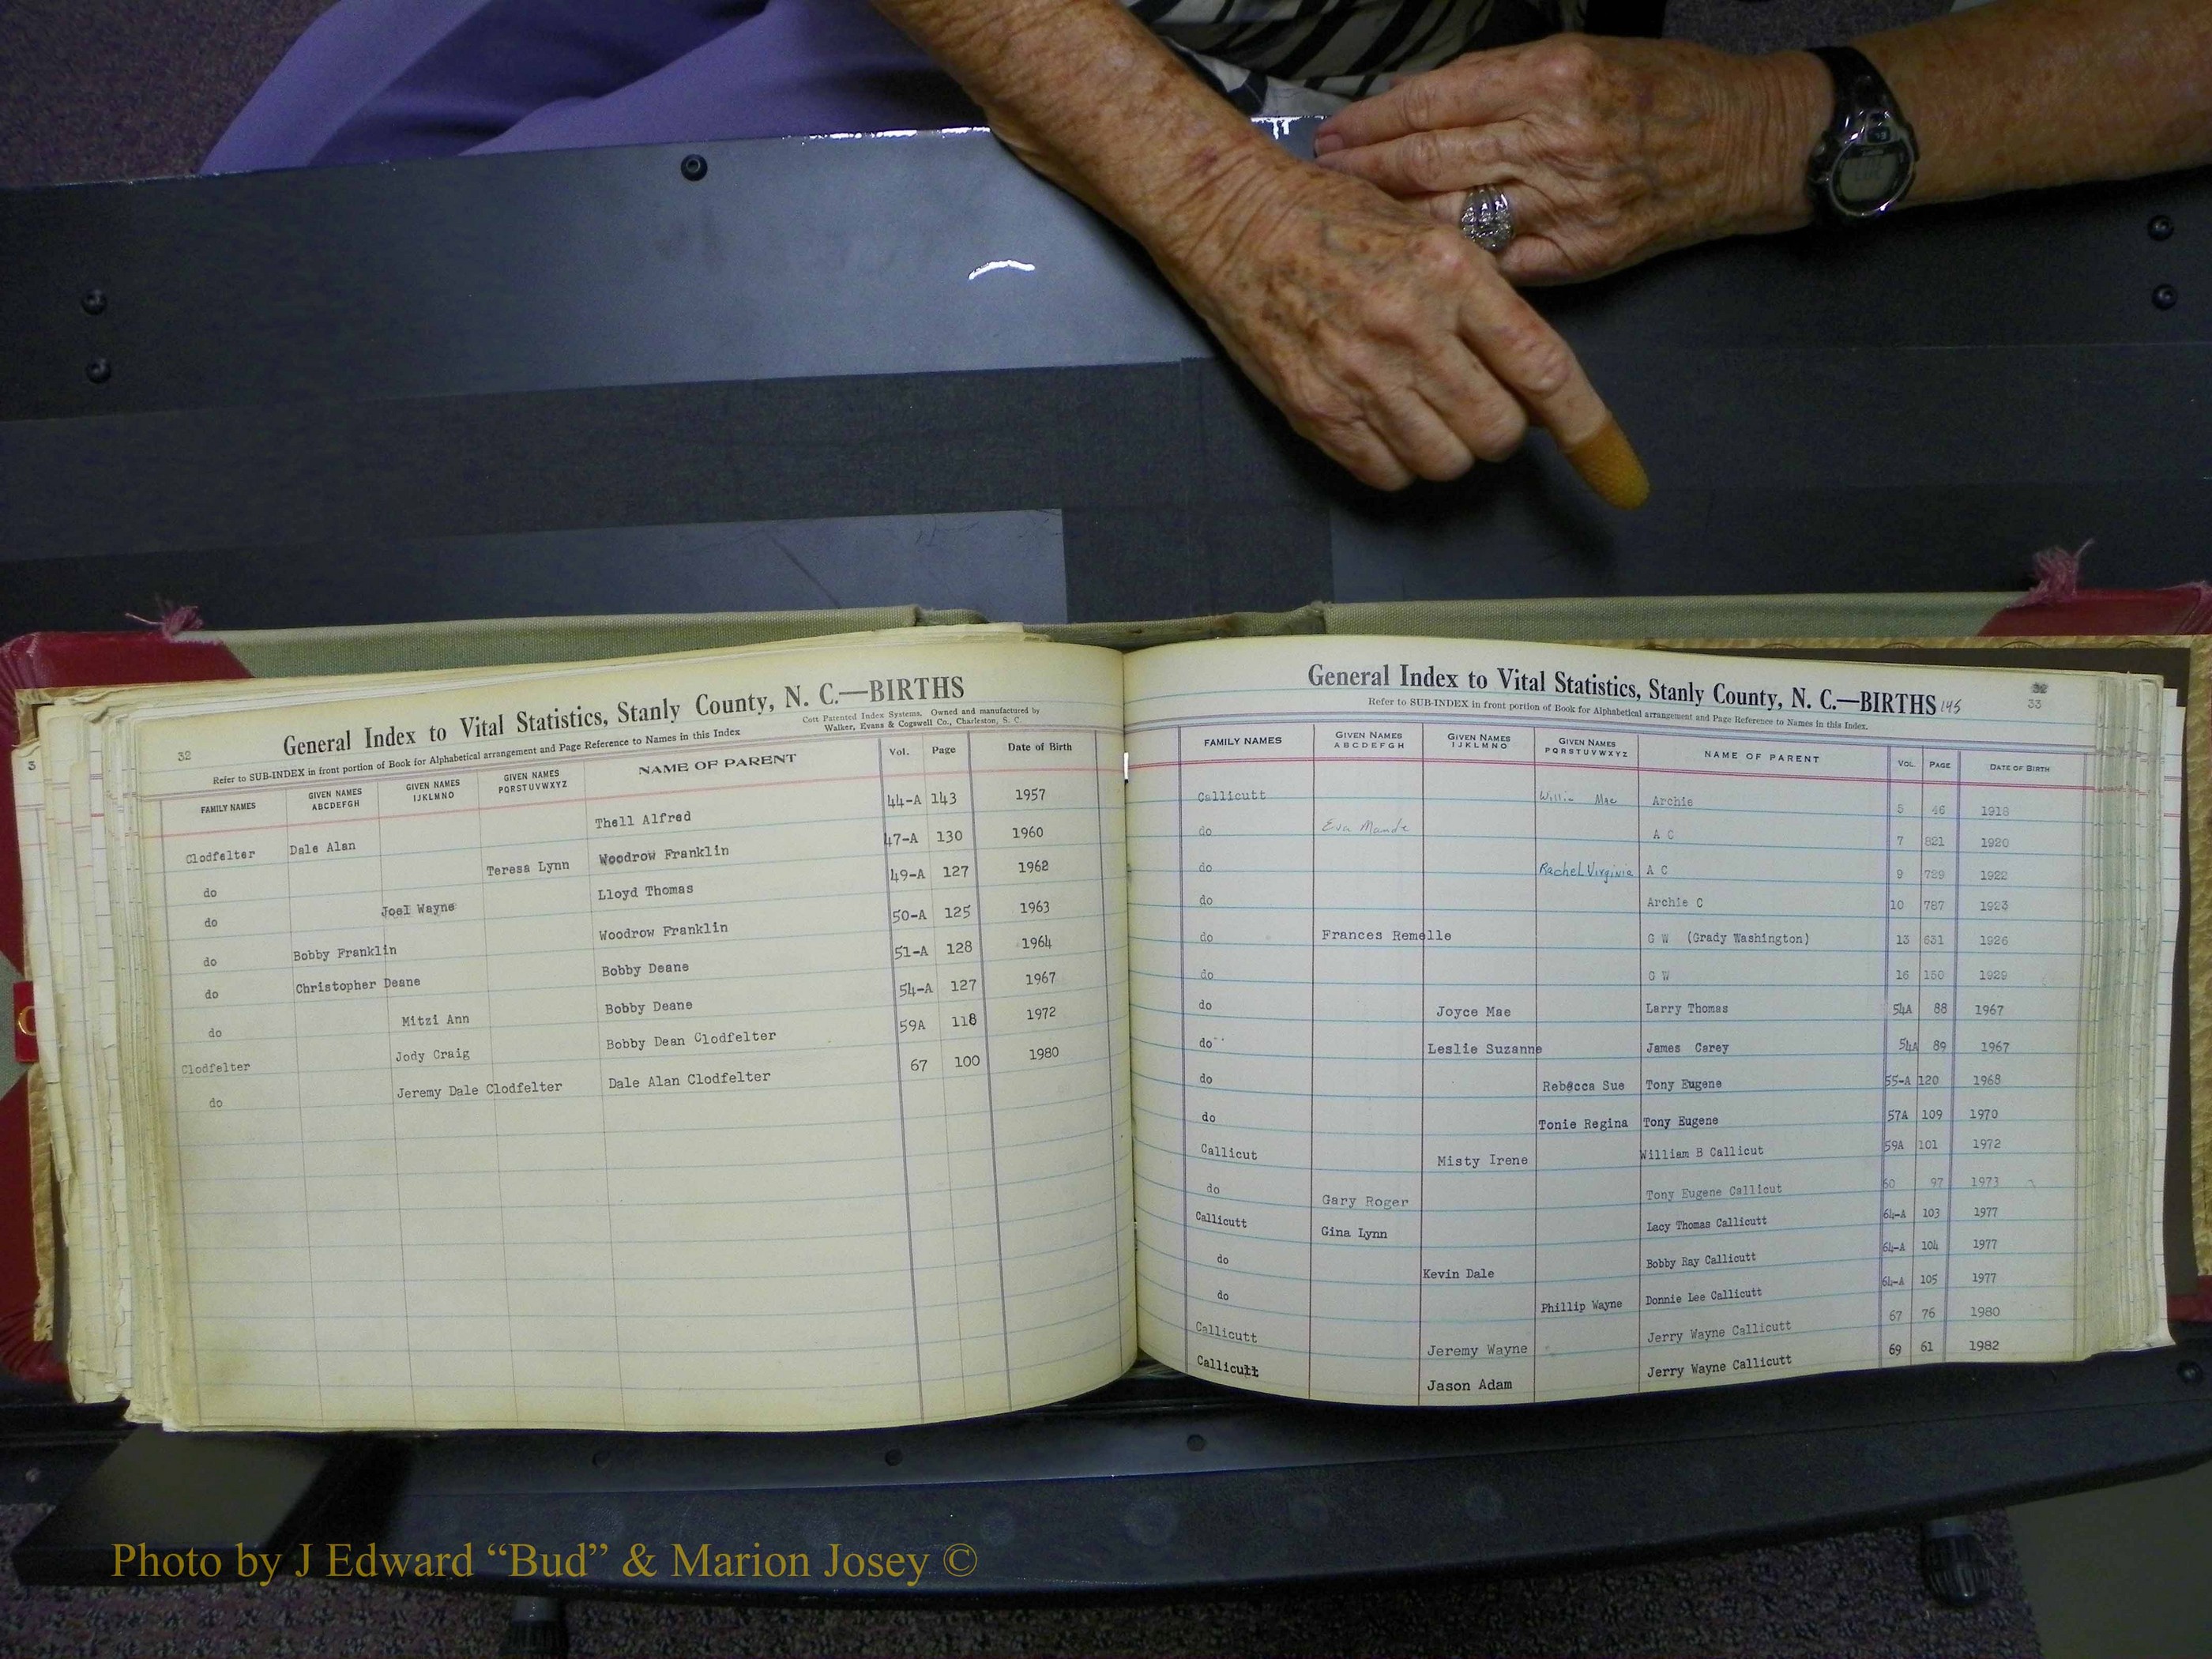 32
General Index to Vital Statistics, Stanly County, N. C.—BIRTHS
Refer to SUB-INDEX in front portion of Book for Alphabetical arrangement and Page Reference to Names in this Index
Cott Patented Index Systems. Owned and manufactured by
Walker, Evans & Cogswell Co., Charleston, S. C.
FAMILY NAMES GIVEN NAMES ABCDEFGH GIVEN NAMES IJKLMNO GIVEN NAMES PQRSTUVWXYZ NAME OF PARENT Vol. Page Date of Birth
Clodfelter Dale Alan Thell Alfred 44-A 143 1957
do Teresa Lynn Woodrow Franklin 47-A 130 1960
do Joel Wayne Lloyd Thomas 49-A 127 1962
do Bobby Franklin Woodrow Franklin 50-A 125 1963
do Christopher Deane Bobby Deane 51-A 128 1964
do Mitzi Ann Bobby Deane 54-A 127 1967
Clodfelter Jody Craig Bobby Dean Clodfelter 59A 118 1972
do Jeremy Dale Clodfelter Dale Alan Clodfelter 67 100 1980
General Index to Vital Statistics, Stanly County, N. C.—BIRTHS 145
33
Refer to SUB-INDEX in front portion of Book for Alphabetical arrangement and Page Reference to Names in this Index.
FAMILY NAMES GIVEN NAMES ABCDEFGH GIVEN NAMES IJKLMNO GIVEN NAMES PQRSTUVWXYZ NAME OF PARENT VOL. PAGE DATE OF BIRTH
Callicutt Willie Mae Archie 5 46 1918
do Eva Maude A C 7 821 1920
do Rachel Virginia A C 9 729 1922
do Archie C 10 787 1923
do Frances Remelle G W (Grady Washington) 13 631 1926
do G W 16 150 1929
do Joyce Mae Larry Thomas 54A 88 1967
do Leslie Suzanne James Carey 54A 89 1967
do Rebecca Sue Tony Eugene 55-A 120 1968
do Tonie Regina Tony Eugene 57A 109 1970
Callicut Misty Irene William B Callicut 59A 101 1972
do Gary Roger Tony Eugene Callicut 60 97 1973
Callicutt Gina Lynn Lacy Thomas Callicutt 64-A 103 1977
do Kevin Dale Bobby Ray Callicutt 64-A 104 1977
do Phillip Wayne Donnie Lee Callicutt 64-A 105 1977
Callicutt Jeremy Wayne Jerry Wayne Callicutt 67 76 1980
Callicutt Jason Adam Jerry Wayne Callicutt 69 61 1982
Photo by J Edward “Bud” & Marion Josey ©